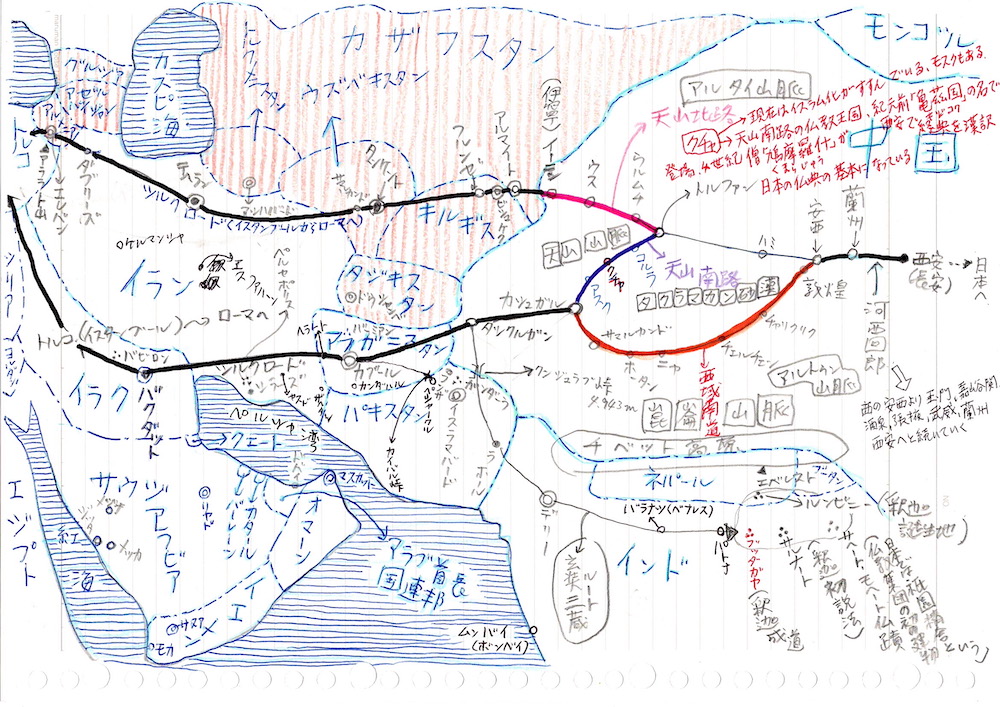 カザフスタン
モンゴル
グルジア
アゼル
バイジャン
カスピ海
トルクメニスタン
ウズベキスタン
(伊寧)
アルタイ山脈
天山北路
でいる、モスクもある。
クチャ→現在はイスラム化がすすん
天山南路の仏教王国、紀元前「亀茲国」の名で
登場、4世紀 僧「鳩摩羅什」が西安で経典を漢訳
くまらじゅう
日本の仏典の基本になっている
トルコ
アララト山
エレバン
タブリーズ
テヘラン
シルクロード(イスタンブールからローマへ)
タシケント
フルンゼ
アルマイト
ビシュケク
イーニン
ウス
ウルムチ
トルファン
キルギス
タジキスタン
ドゥシャンベ
天山山脈
クチャ
コルラ
アスク
天山南路
タクラマカン砂漠
ハミ
安西
蘭州
敦煌
西安
(長安)
日本へ
河西回郎
西の安西より玉門、嘉谷関
酒泉、張掖、武威、蘭州
西安へと続いていく
ケルマンシャ
イラン
エスファハーン
ペルセポリス
シリア
トルコ(イスタンブール)へ→ローマへ
バビロン
イラク
バクダット
シルクロード
シラーズ
ヘラート
バーミアン
アフガニスタン
カブール
カンダハル
カシュガル
タシクルガン
サマルカンド
ホータン
ニヤ
チェルチェン
チャリクリク
西域南道
アルトゥン山脈
クンジュラブ峠
4,943m
崑崙山脈
パキスタン
ペシャワール
ガンダーラ
イスラマバード
カイバル峠
ラホール
チベット高原
ネパール
エベレスト
ブータン
ルンビニ
(釈迦の誕生地)
クエート
ペルシャ湾
マスカット
サウジアラビア
リヤド
カタール
バーレーン
オマーン
イエメン
サヌア
モカ
エジプト
紅海
メジナ
メッカ
アラブ首長国連邦
デリー
玄奘三蔵ルート
インド
バラナシ(ベナレス)
パトナ
ブッダガヤ(釈迦成道)
サルナート(釈迦初説法)
サヘート、モヘート仏蹟
ムンバイ
(ボンベイ)